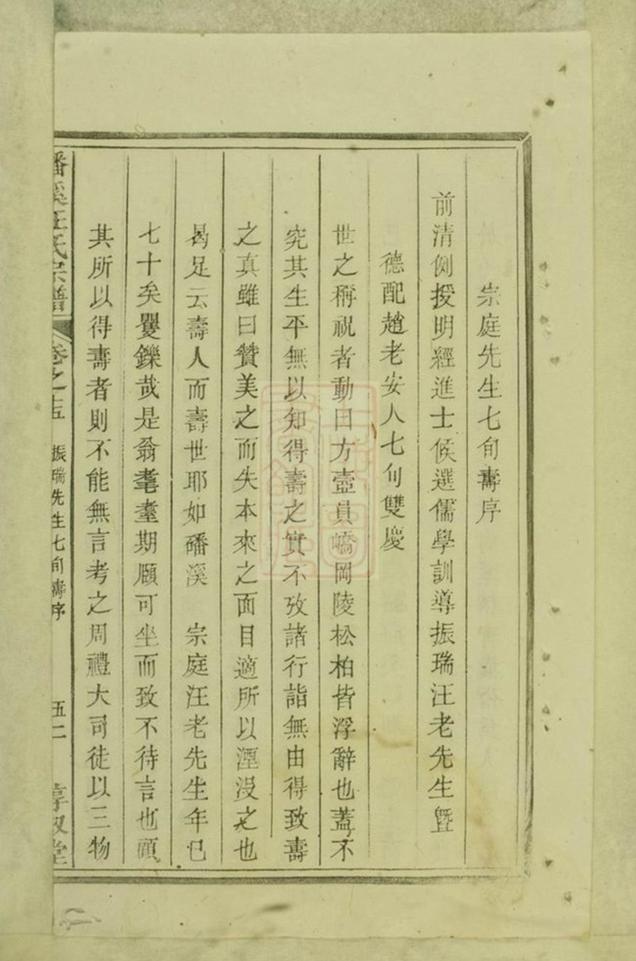 宗庭先生七旬壽序
前清例授明經進士候選儒學訓導振瑞汪老先生暨
德配趙老安人七旬雙慶
世之稱祝者動曰方壼員嶠岡陵松柏皆浮辭也蓋不
究其生平無以知得壽之實不攷諸行詣無由得致壽
之真雖曰贊美之而失本來之面目適所以湮没之也
曷足云壽人而壽世耶如磻溪 宗庭汪老先生年已
七十矣矍鑠哉是翁耄耋期頤可坐而致不待言也顧
其所以得壽者則不能無言考之周禮大司徒以三物
磻溪汪氏宗譜 卷之十五 振瑞先生七旬壽序 五二 惇叙堂